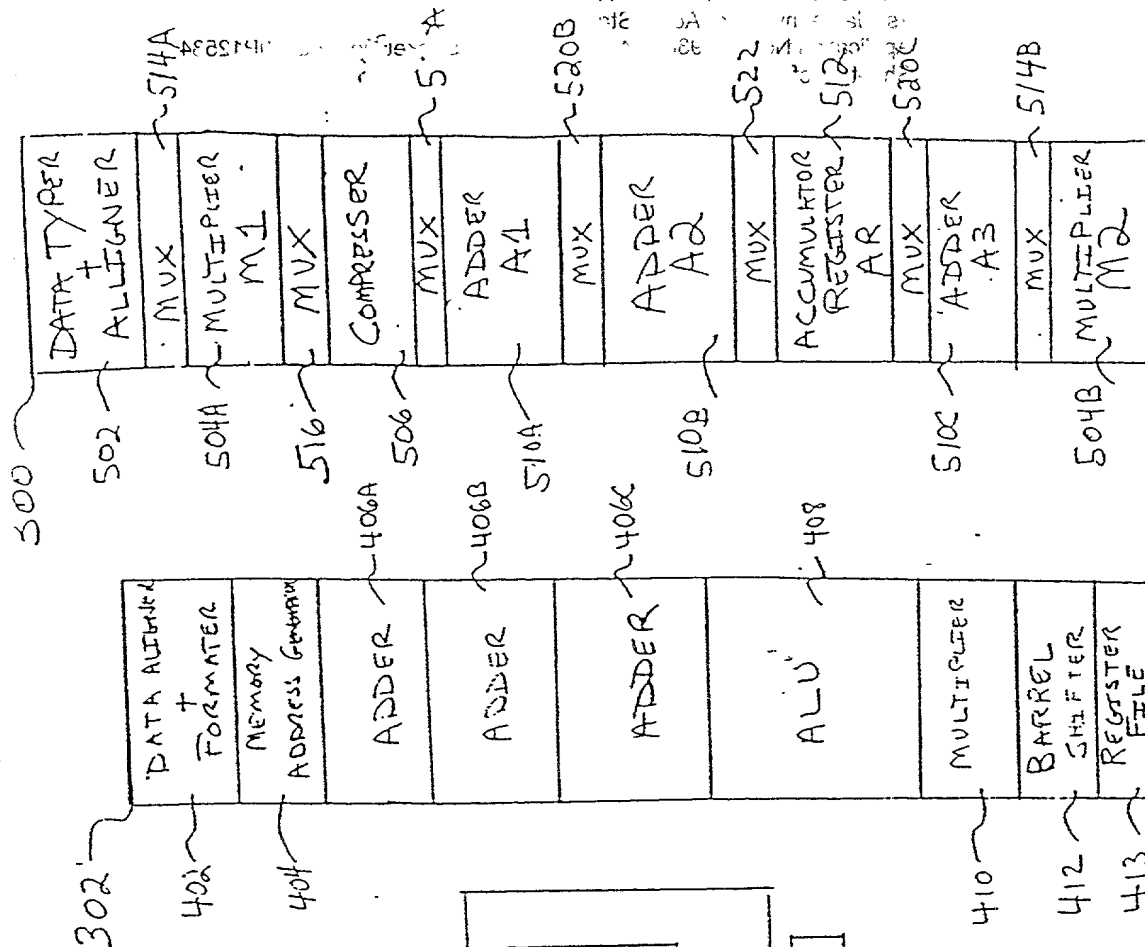 300
DATA TYPER
+
ALLIGNER
502
MUX
514A
504A
MULTIPLIER
M1
MUX
516
COMPRESSER
506
MUX
ADDER
A1
510A
MUX
520B
ADDER
A2
510B
MUX
522
ACCUMULATOR
REGISTER
AR
512
MUX
520C
ADDER
A3
510C
MUX
514B
MULTIPLIER
M2
504B
302
DATA ALIGNER
+
FORMATER
402
MEMORY
ADDRESS
404
ADDER
406A
ADDER
406B
ADDER
406C
ALU
408
MULTIPLIER
410
BARREL
SHIFTER
412
REGISTER
FILE
413